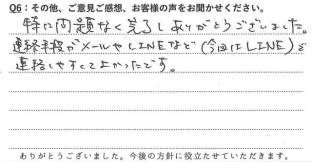 Q6：その他、ご意見ご感想、お客様の声をお聞かせください。
特に問題なく完了しありがとうございました。
連絡手段がメールやLINEなど（今回はLINE）で
連絡しやすくてよかったです。
ありがとうございました。今後の方針に役立たせていただきます。